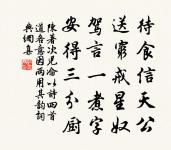 待食信天公
送窮戒星奴
駕言一煮字
安得三分廚
陳著次兒淪以詩四首
道吾意因兩用其韻詞
與綱集